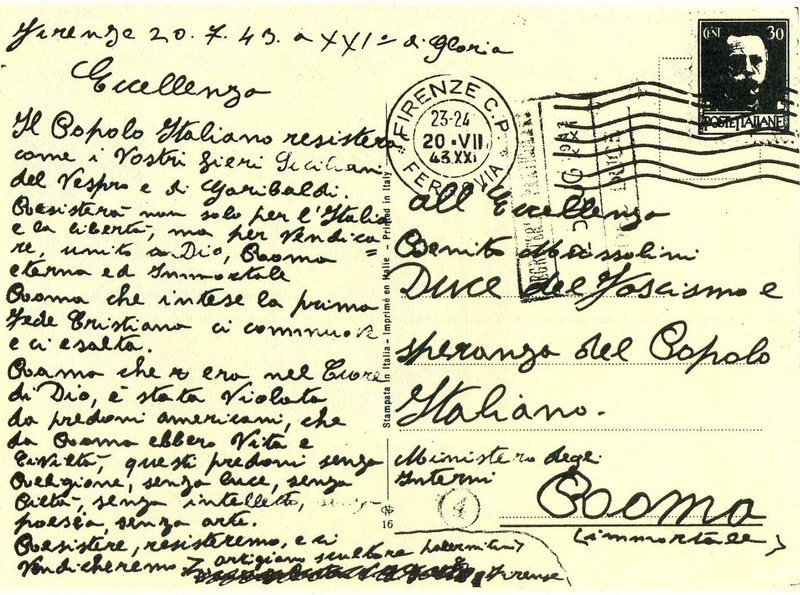 Firenze 20.7.43. a XXI° di Gloria
Eccellenza
Il Popolo Italiano resisterà
come i Vostri fieri Siciliani
del Vespro e di Garibaldi.
Resisterà non solo per l'Italia
e la libertà, ma per Vendica=
re, unito a Dio, Rooma
eterna ed Immortale
Rooma che intese la prima
Fede Cristiana ci commuove
e ci esalta.
Rooma che era nel Cuore
di Dio, è stata Violata
da predoni americani, che
da Rooma ebbero Vita e
Civiltà, questi predoni senza
Religione, senza luce, senza
Pietà, senza intelletto, senza
poesia, senza arte.
Resistere, resisteremo, e ci
Vendicheremo
artigiano scultore palermitano
Firenze
Stampata in Italia - Imprimé en Italie - Printed in Italy
16
FIRENZE C.P.
23-24
20·VII
43.XXI
FERROVIA
CENT 30
POSTE ITALIANE
All Eccellenza
Benito Mussolini
Duce del Fascismo e
speranza del Popolo
Italiano.
Ministero degli
Interni
4
Rooma
(immortale)